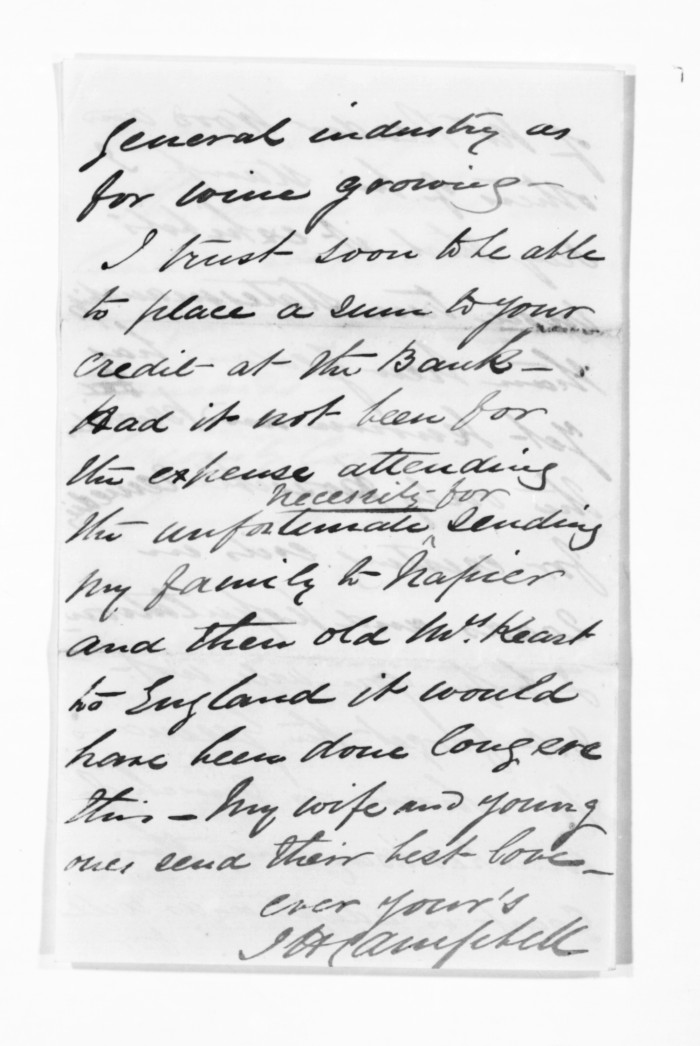 General industry as
for wine growing —
I trust soon to be able
to place a sum to your
credit at the Bank —
Had it not been for
the expense attending
necessity for
the unfortunate ^ sending
my family to Napier
and then old Mrs. Keast
to England it would
have been done long ere
this — My wife and young
ones send their best love —
ever your's
J H Campbell